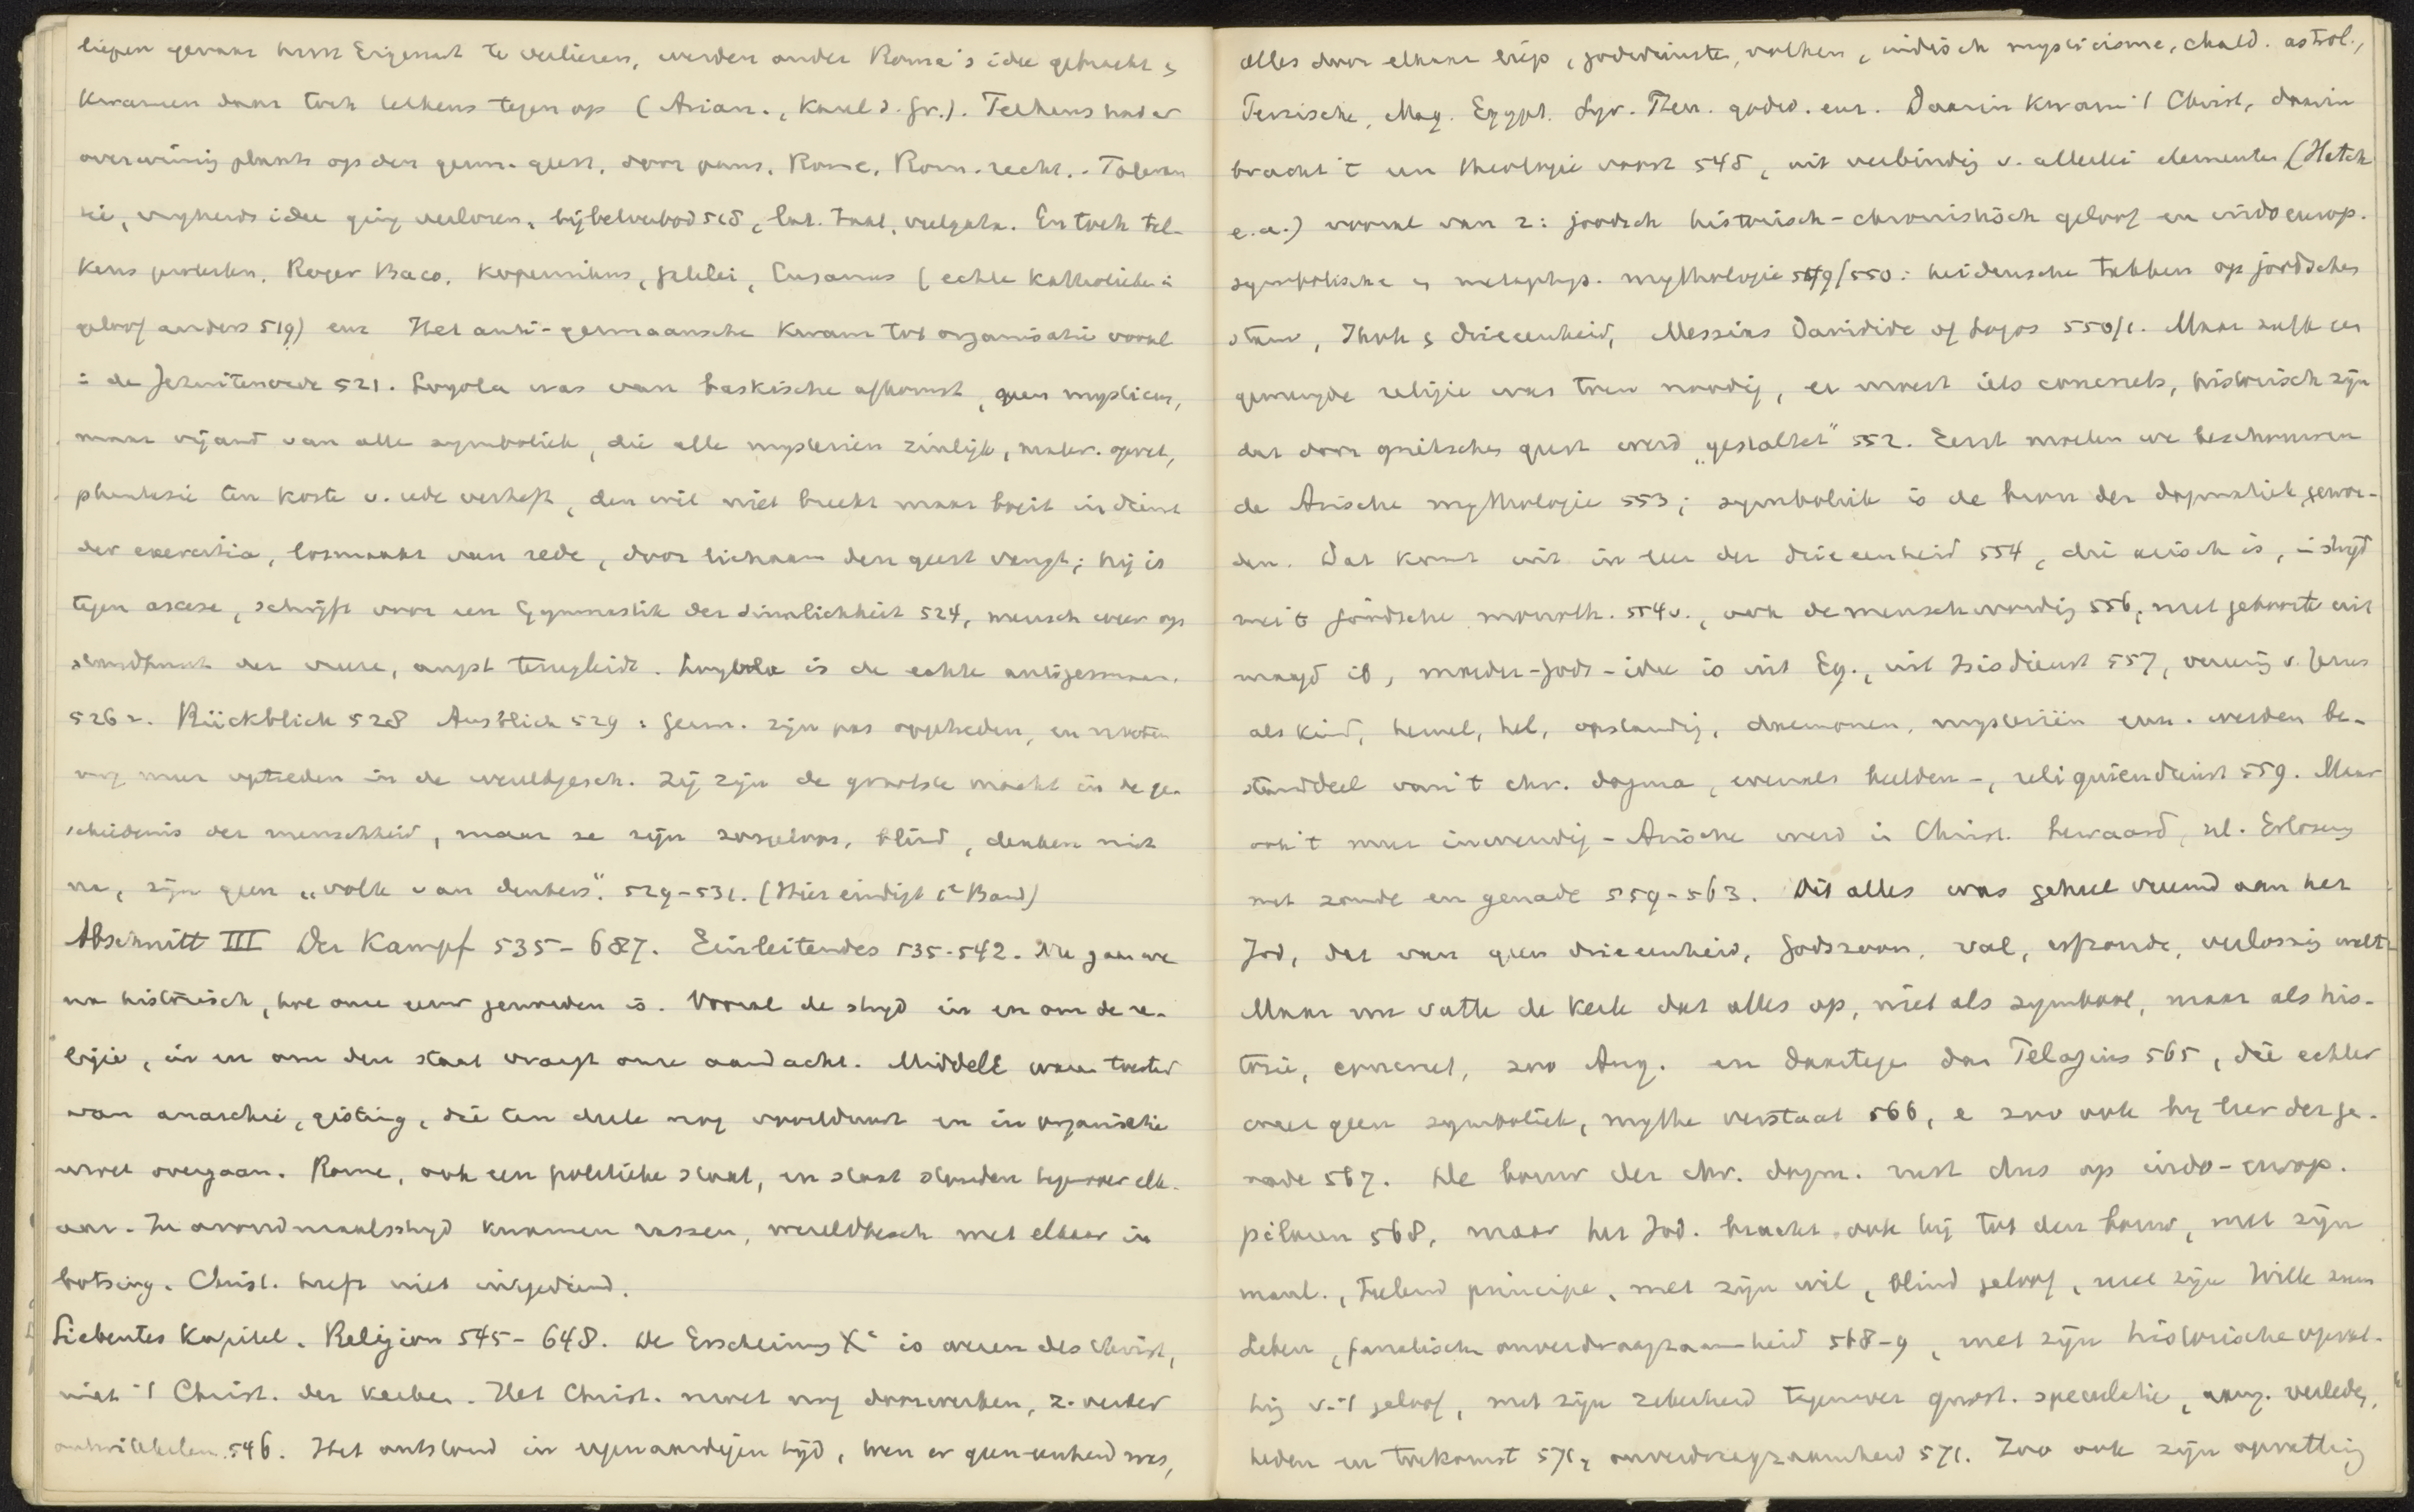 liepen gevaar hun Eigenart te verliezen, werden onder Rome's idee gebracht &
kwamen daar toch telkens tegen op (Arian., Karel d. Gr.). Telkens had er
overwinnig plaats op den germ. geest, door paus, Rome, Rom. recht.
vrijheids idee ging verloren, bijbelverbod 515, Lat. taal, vulgata. En toch tel-
kens protesten. Roger Baco, Kopernikus, Galilei, Cusanus (echte Katholieke i
geloof anders 519) enz Het anti-germaansche kwam tot organisatie vooral
i de Jezuitenorde 521. Loyola was van baskische afkomst, geen mysticus,
maar vijand van alle symboliek, die alle mysterien zinlijk, mater. opvat,
phantasie ten koste v. rede verheft, den wil niet breekt maar buigt in dienst
der exercitia, losmaakt van rede, door lichaam den geest vangt; hij is
tegen ascese, schrijft voor een Gymnastik der Sinnlichkeit 524, mensch weer op
standpunt der vreeze, angst terugleidt. Loyola is de echte antigerman.
526 v. Rückblick 528 Ausblick 529: Germ. zijn pas opgetreden, en moeten
nog meer optreden in de wereldgesch. Zij zijn de grootste macht in de ge-
schiedenis der menschheid, maar ze zijn zorgeloos, blind, denken niet
na, zijn geen „volk van denkers". 529-531. (Hier eindigt 1e Band)
Abschnitt III Der Kampf 535-687. Einleitendes 535-542. Nu gaan we
na historisch, hoe onze eeuw geworden is. Vooral de strijd in en om de re-
ligie, in en om den staat vraagt onze aandacht. Middele waren toestd
van anarchie, gisting, die ten deele nog voortduurt en in organisatie
moet overgaan. Rome, ook een politieke staat, en staat stonden tegenover elk-
aar. In avondmaalsstrijd kwamen rassen, wereldbesch met elkaar in
botsing. Christ. heeft niet uitgediend.
Siebentes Kapitel. Religion 545-648. De Erscheinung Xi is wezen des Christ,
niet 't Christ. der kerken. Het Christ. moet nog doorwerken, z. verder
ontwikkelen 546. Het ontstond in eigenaardigen tijd, toen er geen eenheid was,
alles door elkaar liep, godsdiensten, volken, indisch mysticisme, chald. astrol.,
Perzische, Mag. Egypt. Syr. godsd. enz. Daarin kwam 't Christ, daarin
bracht 't een theologie voort 548, uit verbindig v. allerlei elementen (Hatch
e.a.) vooral van 2: joodsch historisch-chronistisch geloof en indoeurop.
symbolische & metaphys. mythologie 549/550: heidensche takken op joodschen
stam, Jhvh & drieeenheid, Messias Davidide of Logos 550/1. Maar zulk een
gemengde religie was toen noodig, er moest iets concreets, historisch zijn
dat door grieksche geest werd „gestaltet" 552. Eerst moeten we beschouwen
de Arische mythologie 553; symboliek is de bron der dogmatiek gewor-
den. Dat komt uit in leer der drieeenheid 554, die arisch is, i strijd
met Joodsche monoth. 554v., ook de menschwording 556, met geboorte uit
maagd ib, moeder-Gods-idee is uit Eg., uit Isisdienst 557, vereerig v. Jezus
als kind, hemel, hel, opstandig, daemonen, mysteriën enz. werden be-
standdeel van 't chr. dogma, evenals beelden-, reliquiendienst 559. Maar
ook 't meer inwendig-Arische werd i Christ. bewaard, nl. Erlösung
met zonde en genade 559-563. Dit alles was geheel vreemd aan het
Jod, dat van geen drieeenheid, Godszoon, val, erfzonde, verlossig weet
Maar nu vatte de kerk dat alles op, niet als symbool, maar als his-
torie, concreet, zoo Aug. en daartegen dan Pelagius 565, die echter
weer geen symboliek, mythe verstaat 566, e zoo ook bij leer der ge-
nade 567. De bouw der chr. dogm. rust dus op indo-europ.
pilaren 568, maar het Jod. bracht ook bij tot den bouw, met zijn
maal., principe, met zijn wil, blind geloof, met zijn Wille zum
Leben, fanatische onverdraagzaamheid 568-9, met zijn historische opvat-
tig v. 't geloof, met zijn zekerheid tegenover gnost. speculatie, aang. verleden,
heden en toekomst 571, onverdraagzaamheid 571. Zoo ook zijn opvattig